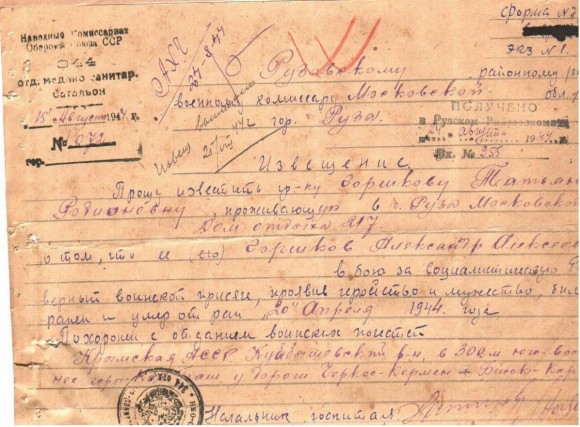 Форма №2
Экз №1.
Народный Комиссариат
Обороны Союза ССР
944
отд. медико санитар.
батальон
15 Августа 1944 г.
№ 1072
гор.
АХЧ
24-8-44
Рузовскому районному
военному комиссару Московской обл.
гор. Руза.
ПОЛУЧЕНО
в Рузском Райвоенкомате
24 август 1944
Вх. № 355
Извещение
Прошу известить гр-ку Горшкову Татьян
Родионовну, проживающую в г. Руза Московской
Дом отдыха 217
о том, что ее (его) Горшков Александр Алексее
в бою за социалистическую
верный воинской присяге, проявив геройство и мужество, был
ранен и умер от ран „20" Апреля 1944 года
Похоронен с отданием воинских почестей
Крымская АССР Куйбышевский р-н, в 300 м. юго-вос
нее у дороги Черкес-Кермен
Начальник госпиталя